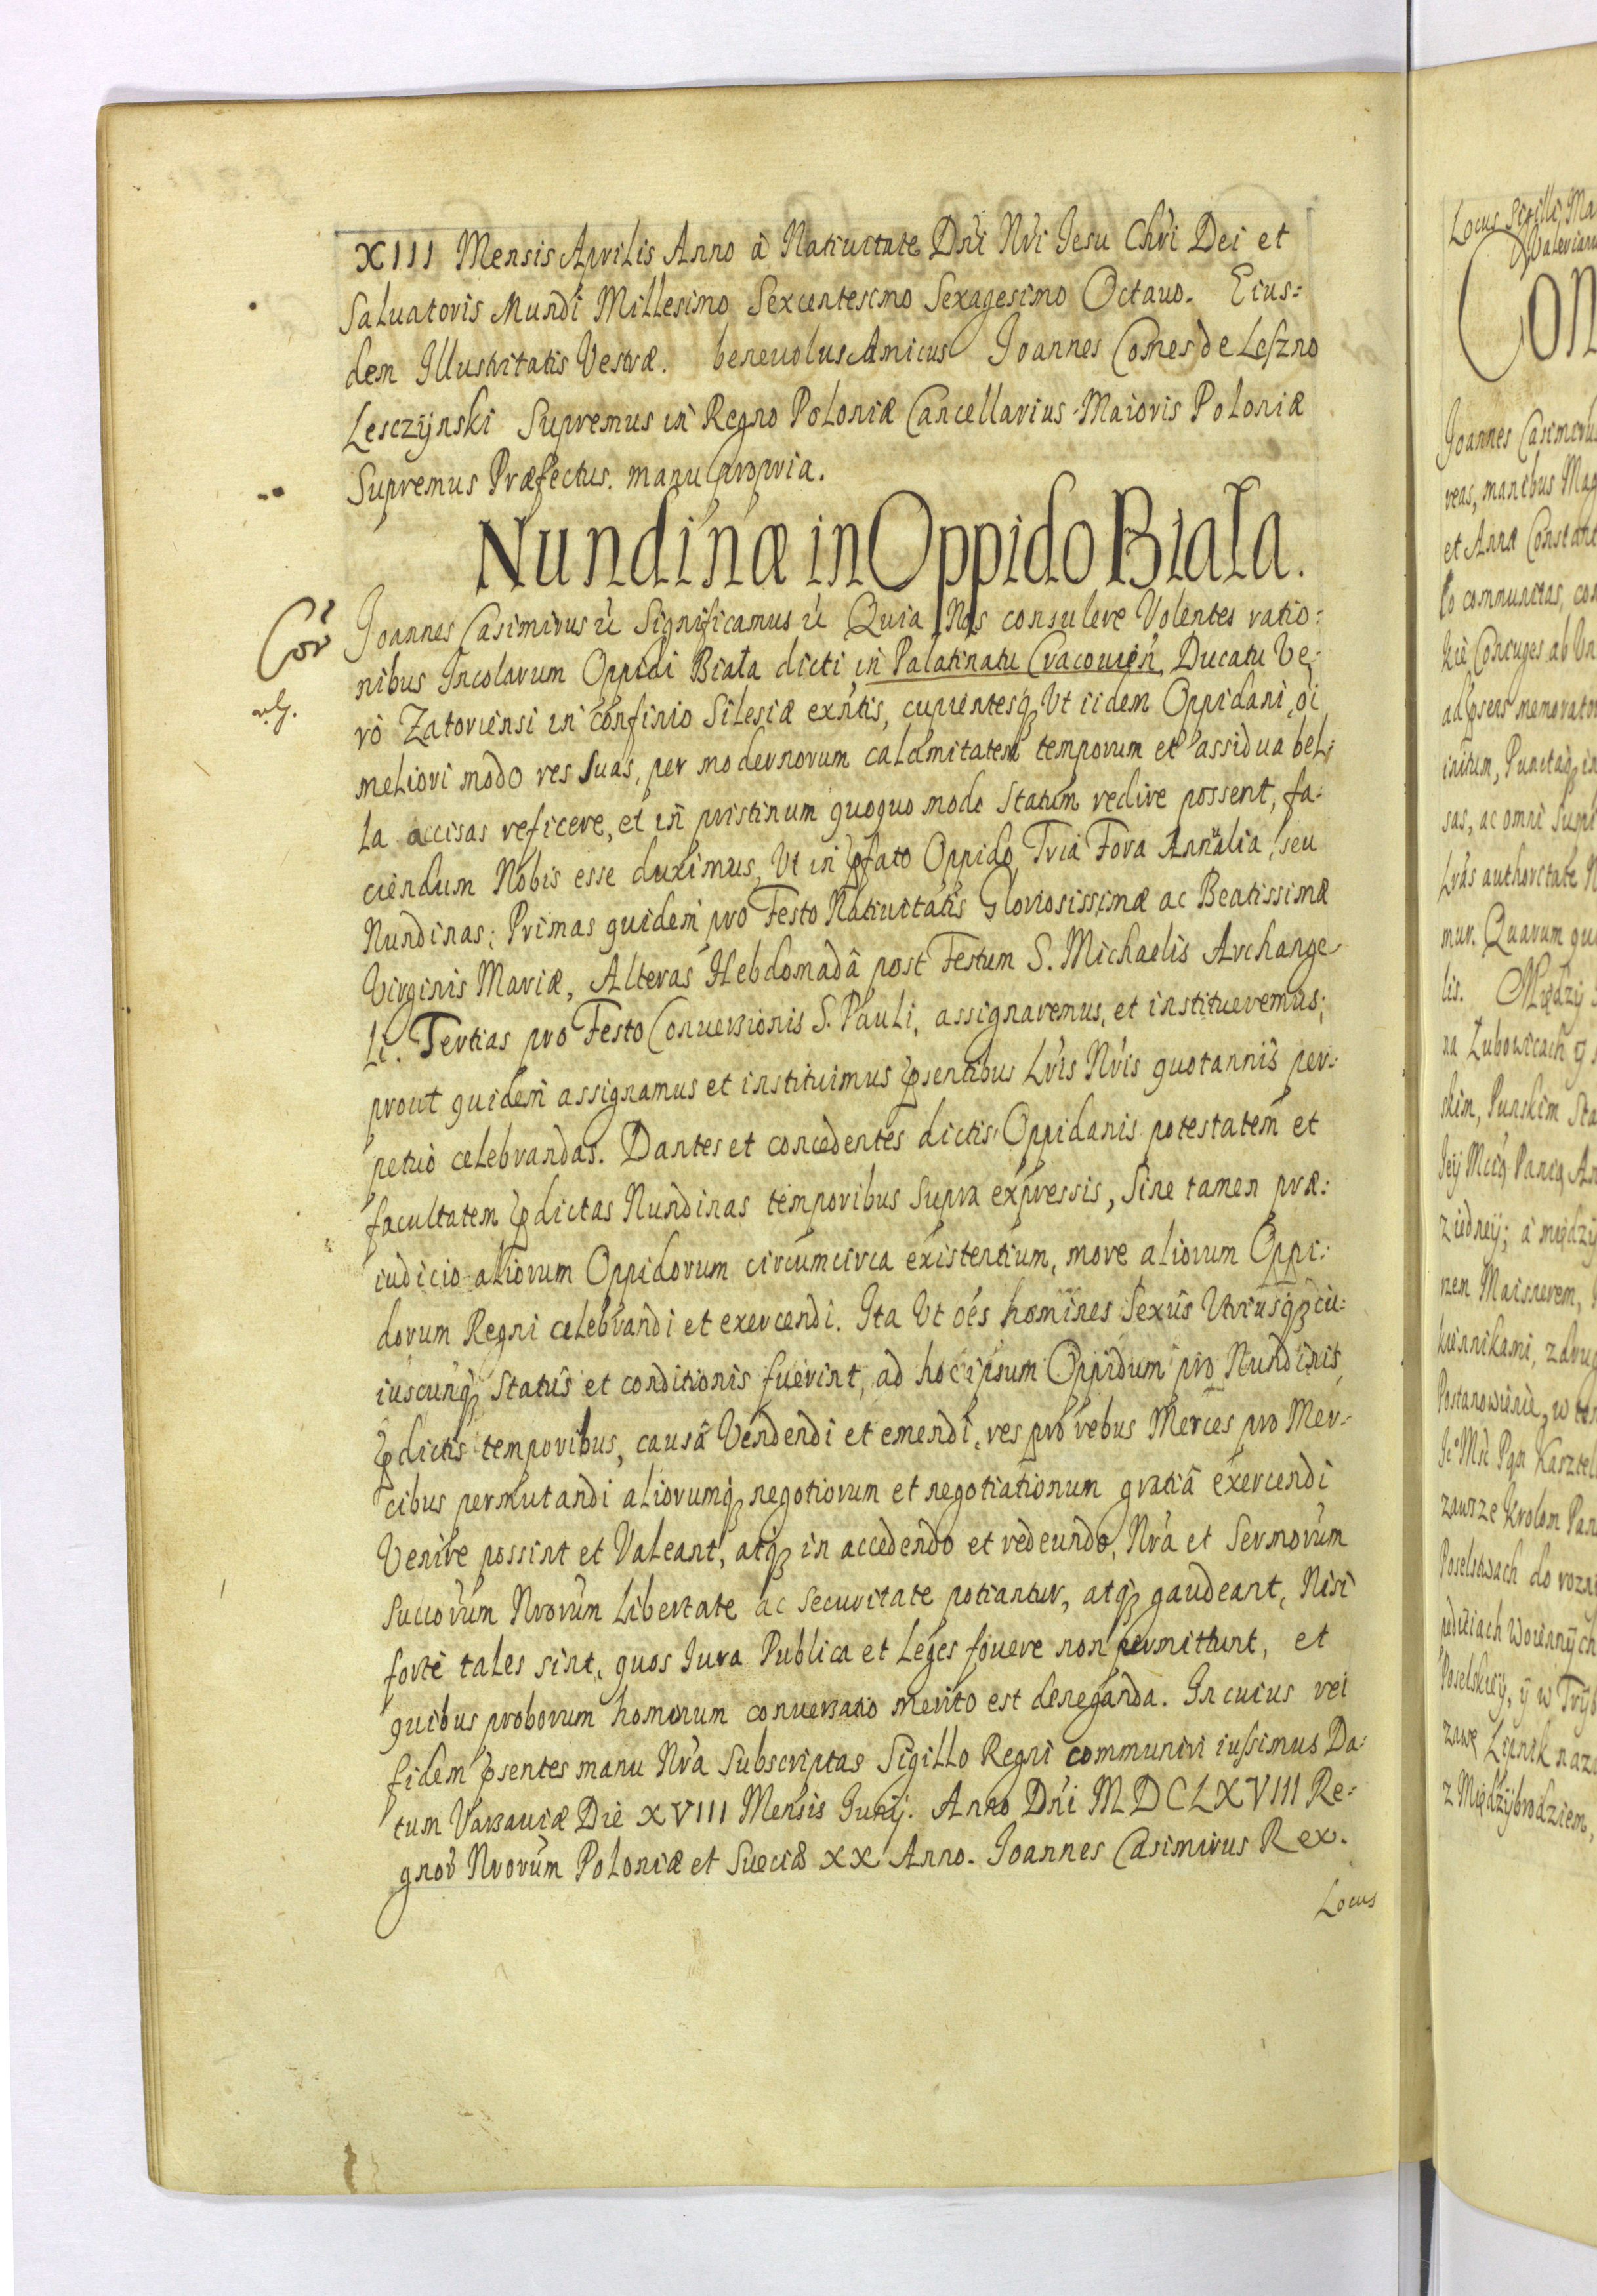 XIII Mensis Aprilis Anno â Natiuitate Dńi Nŕi Jesu Chŕi Dei et
Saluatoris Mundi Millesimo Sexcentesimo Sexagesimo Octauo. Eius=
dem Illustritatis Vestræ. beneuolus Amicus Joannes Comes de Leszno
Lesczÿnski Supremus in Regno Poloniæ Cancellarius Maioris Poloniæ
Supremus Præfectus. manu propria.
Nundinæ in Oppido Biała.
Cor
Joannes Casimirus &c Significamus &c Quia Nos consulere Volentes ratio=
nibus Incolarum Oppidi Biała dicti, in Palatinatu Cracouień, Ducatu Ve=
rò Zatoriensi in confinio Silesiæ exńtis, cupientesq; Vt iidem Oppidani, oi
meliori modo res suas, per modernorum calamitatem temporum et assidua bel=
la accisas reficere, et in pristinum quoquo modo statum redire possent, fa=
ciendum Nobis esse duximus, Vt in pfato Oppido, Tria Fora Annalia, seu
Nundinas; Primas quidem pro Festo Natiuitatis Gloriosissimæ ac Beatissimæ
Virginis Mariæ, Alteras Hebdomadâ post Festum S. Michaelis Archange=
li. Tertias pro Festo Conuersionis S. Pauli, assignaremus, et institueremus;
prout quidem assignamus et instituimus psentibus Lŕis Nŕis quotannis per=
petuò celebrandas. Dantes et concedentes dictis Oppidanis potestatem et
facultatem pdictas Nundinas temporibus supra expressis, sine tamen præ=
iudicio aliorum Oppidorum circumcirca existentium, more aliorum Oppi=
dorum Regni celebrandi et exercendi. Ita Vt oés homines sexûs Vtriusq; cu=
iuscunq; statûs et conditionis fuerint, ad hoc ipsum Oppidum pro Nundinis
pdictis temporibus, causâ Vendendi et emendi, res pro rebus Merces pro Mer=
cibus permutandi aliorumq; negotiorum et negotiationum gratiâ exercendi
Venire possint et Valeant, atq; in accedendo et redeundo, Nŕa et Sermorum
Succorum Nrorum Libertate ac securitate potiantur, atq; gaudeant, Nisi
fortè tales sint, quos Jura Publica et Leges fouere non permittunt, et
quibus proborum hominum conuersatio meritò est deneganda. In cuius rei
fidem psentes manu Nŕa Subscriptas Sigillo Regni communiri iussimus Da=
tum Varsauiæ Die XVIII Mensis Junij. Anno Dńi MDCLXVIII Re=
gnor Nrorum Poloniæ et Sueciæ XX Anno. Joannes Casimirus Rex.
Locus
Locus Sigilli, Ma
Valerian
Con
Joannes Casimirus
reas, manibus Mag
et Annæ Constant
to communitas, con
kie Coniuges ab Vn
ad psens memorator
initum, Punctaq; in
sas, ac omni
Lŕas authoritate N
mur. Quarum qui
lis. Między
na Łubowicach ÿ
skim, Punskim Sta
Jeÿ Mći Panią An
ziedneÿ; á międzÿ
nem Maisnerem,
kiennikami, z drug
Postanowienie, w ten
Je° Mći Pan Kasztel
zawsze Krolom Pan
Poselstwach do rozn
peditiach Woiennÿch
Poselskieÿ, ÿ w Trÿb
zawę Lipnik naz
z Międzÿbrodziem,